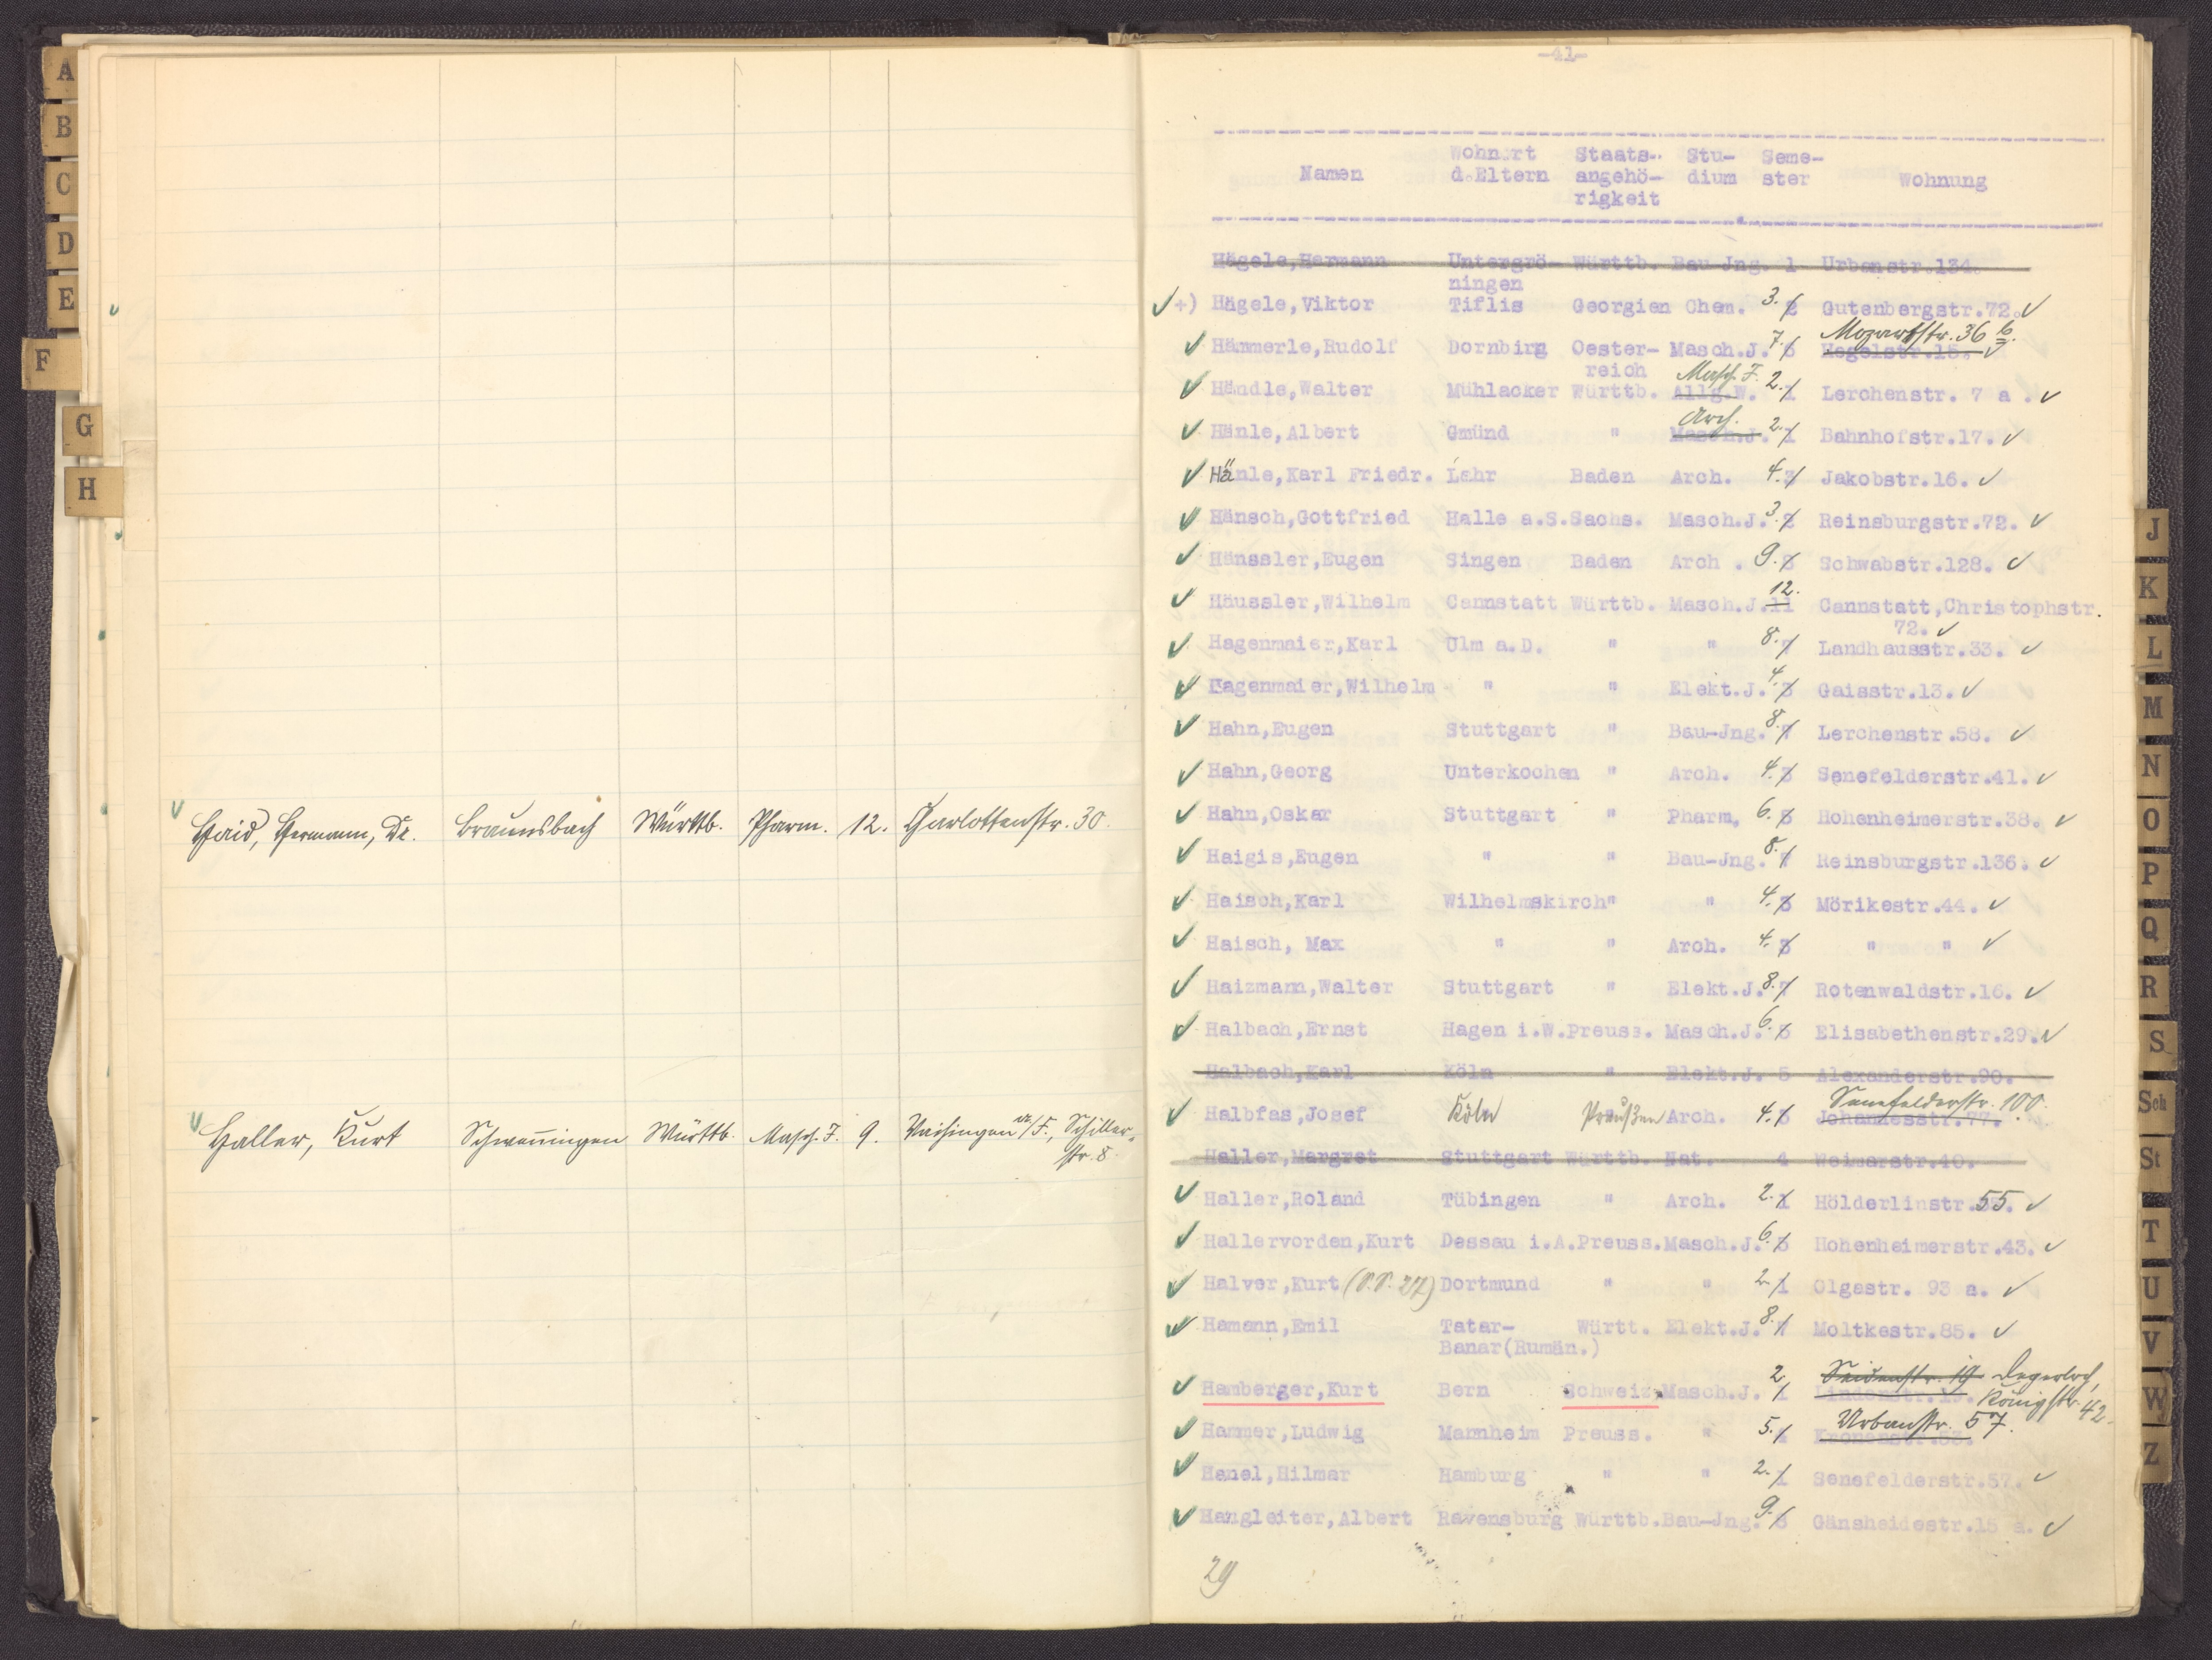 A
B
C
D
E
F
G
H
Haid, Hermann, Dr. Braunsbach Württb. Pharm. 12. Charlottenstr. 30.
Haller, Kurt Schwenningen Württb. Masch.J. 9. Vaihingen a/F., Schiller-
str. 8
-41-
Wohnort Staats- Stu- Seme-
Namen d.Eltern angehö- dium ster Wohnung
rigkeit
Hägele,Hermann Untergrö- Württb. Bau-Jng. 1 Urbanstr.134.
ningen
+) Hägele,Viktor Tiflis Georgien Chem. 3. 2 Gutenbergstr.72.
Mozartstr. 36 b.
Hämmerle,Rudolf Dornbirg Oester- Masch.J. 7. 6 Hegelstr.15.
reich Masch. J.
Händle,Walter Mühlacker Württb. Allg.W. 2. 1 Lerchenstr. 7 a .
Arch.
Hänle,Albert Gmünd " Masch.J. 2. 1 Bahnhofstr.17.
Hänle,Karl Friedr. Lahr Baden Arch. 4. 3 Jakobstr.16.
Hänsch,Gottfried Halle a.S.Sachs. Masch.J. 3. 2 Reinsburgstr.72.
Hänssler,Eugen Singen Baden Arch . 9. 8 Schwabstr.128.
12.
Häussler,Wilhelm Cannstatt Württb. Masch.J.11 Cannstatt,Christophstr.
72.
Hagenmaier,Karl Ulm a.D. " " 8. 7 Landhausstr.33.
Hagenmaier,Wilhelm " " Elekt.J. 4. 3 Gaisstr.13.
Hahn,Eugen Stuttgart " Bau-Jng. 8. 7 Lerchenstr.58.
Hahn,Georg Unterkochen " Arch. 4. 3 Senefelderstr.41.
Hahn,Oskar Stuttgart " Pharm. 6. 5 Hohenheimerstr.38.
Haigis,Eugen " " Bau-Jng. 8. 7 Reinsburgstr.136.
Haisch,Karl Wilhelmskirch" " 4. 3 Mörikestr.44.
Haisch, Max " " Arch. 4. 3 " "
Haizmann,Walter Stuttgart " Elekt.J. 8. 7 Rotenwaldstr.16.
Halbach,Ernst Hagen i.W.Preuss. Masch.J. 6. 5 Elisabethenstr.29.
Halbach,Karl Köln " Elekt.J. 5 Alexanderstr.90.
Senefelderstr. 100.
Halbfas,Josef Köln Preußen Arch. 4. 3 Johannesstr.77.
Haller,Margret Stuttgart Württb. Nat. 4 Weimarstr.40.
Haller,Roland Tübingen " Arch. 2. 1 Hölderlinstr.55.
Hallervorden,Kurt Dessau i.A.Preuss.Masch.J. 6. 5 Hohenheimerstr.43.
Halver,Kurt (S.S. 27) Dortmund " " 2. 1 Olgastr. 93 a.
Hamann,Emil Tatar- Württ. Elekt.J. 8. 7 Moltkestr.85.
Banar(Rumän.)
Seidenstr. 19 Degerloch,
Hamberger,Kurt Bern Schweiz Masch.J. 2. 1 Lindenstr.19. Königstr. 42.
Urbanstr. 57.
Hammer,Ludwig Mannheim Preuss. " 5. 4 Kronenstr.53.
Hanel,Hilmar Hamburg " " 2. 1 Senefelderstr.57.
Hangleiter,Albert Ravensburg Württb.Bau-Jng. 9. 8 Gänsheidestr.15 a.
29
J
K
L
M
N
O
P
Q
R
S
Sch
St
T
U
V
W
Z